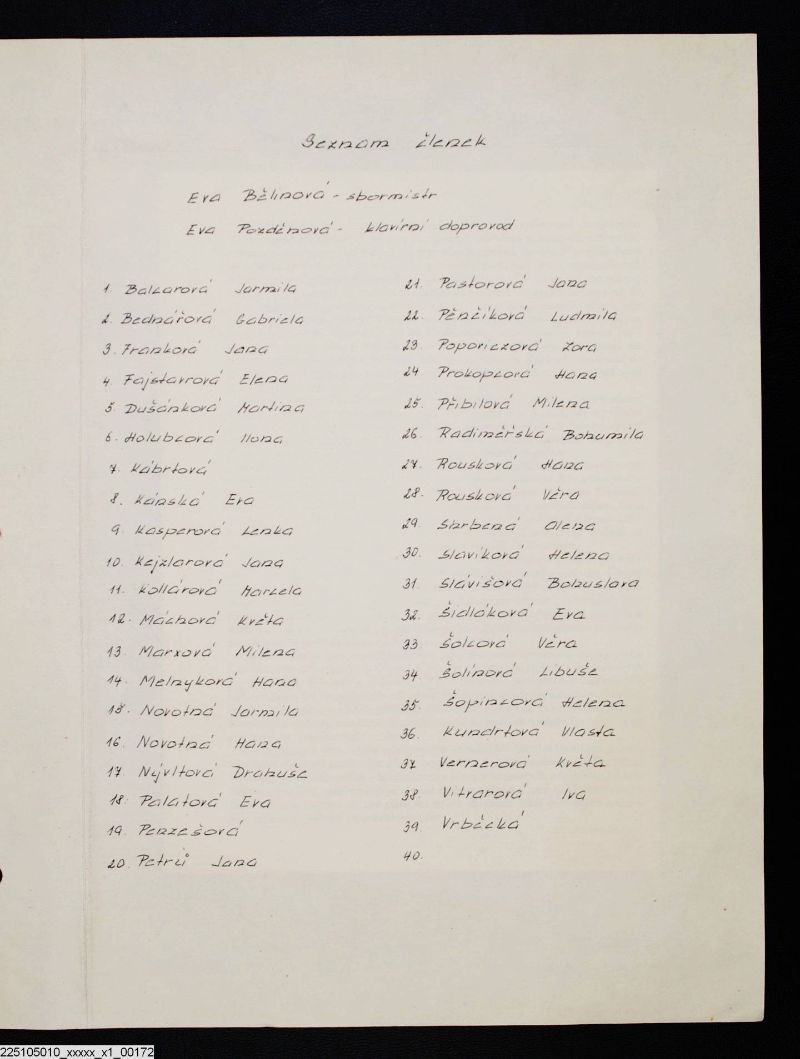 Seznam členek
Eva Bělinová - sbormistr
Eva Pozděnová - klavírní doprovod
1. Balcarová Jarmila
2. Bednářová Gabriela
3. Franková Jana
4. Fajstavrová Elena
5. Dušánková Martina
6. Holubcová Ilona
7. Kábrtová
8. Kánská Eva
9. Kasperová Lenka
10. Kejzlarová Jana
11. Kollárová Marcela
12. Máchová Květa
13. Marxová Milena
14. Melnyková Hana
15. Novotná Jarmila
16. Novotná Hana
17. Nývltová Drahuše
18. Palatová Eva
19. Penzešová
20. Petrů Jana
21. Pastorová Jana
22. Pěnčíková Ludmila
23. Poporiczová Zora
24. Prokopcová Hana
25. Přibilová Milena
26. Radiměřská Bohumila
27. Rousková Hana
28. Rousková Věra
29. Skrbená Olena
30. Slavíková Helena
31. Slávišová Bohuslava
32. Šidláková Eva
33. Šolcová Věra
34. Šolínová Libuše
35. Šopincová Helena
36. Kundrtová Vlasta
37. Vernerová Květa
38. Vitvarová Iva
39. Vrběcká
40.
225105010_xxxxx_x1_00172